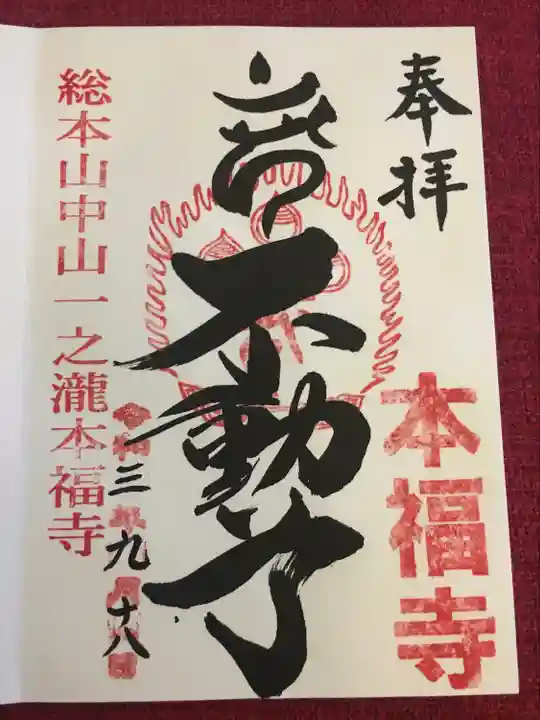 奉拝
本福寺
不動
令和三年九月十八日
総本山中山一之瀧本福寺